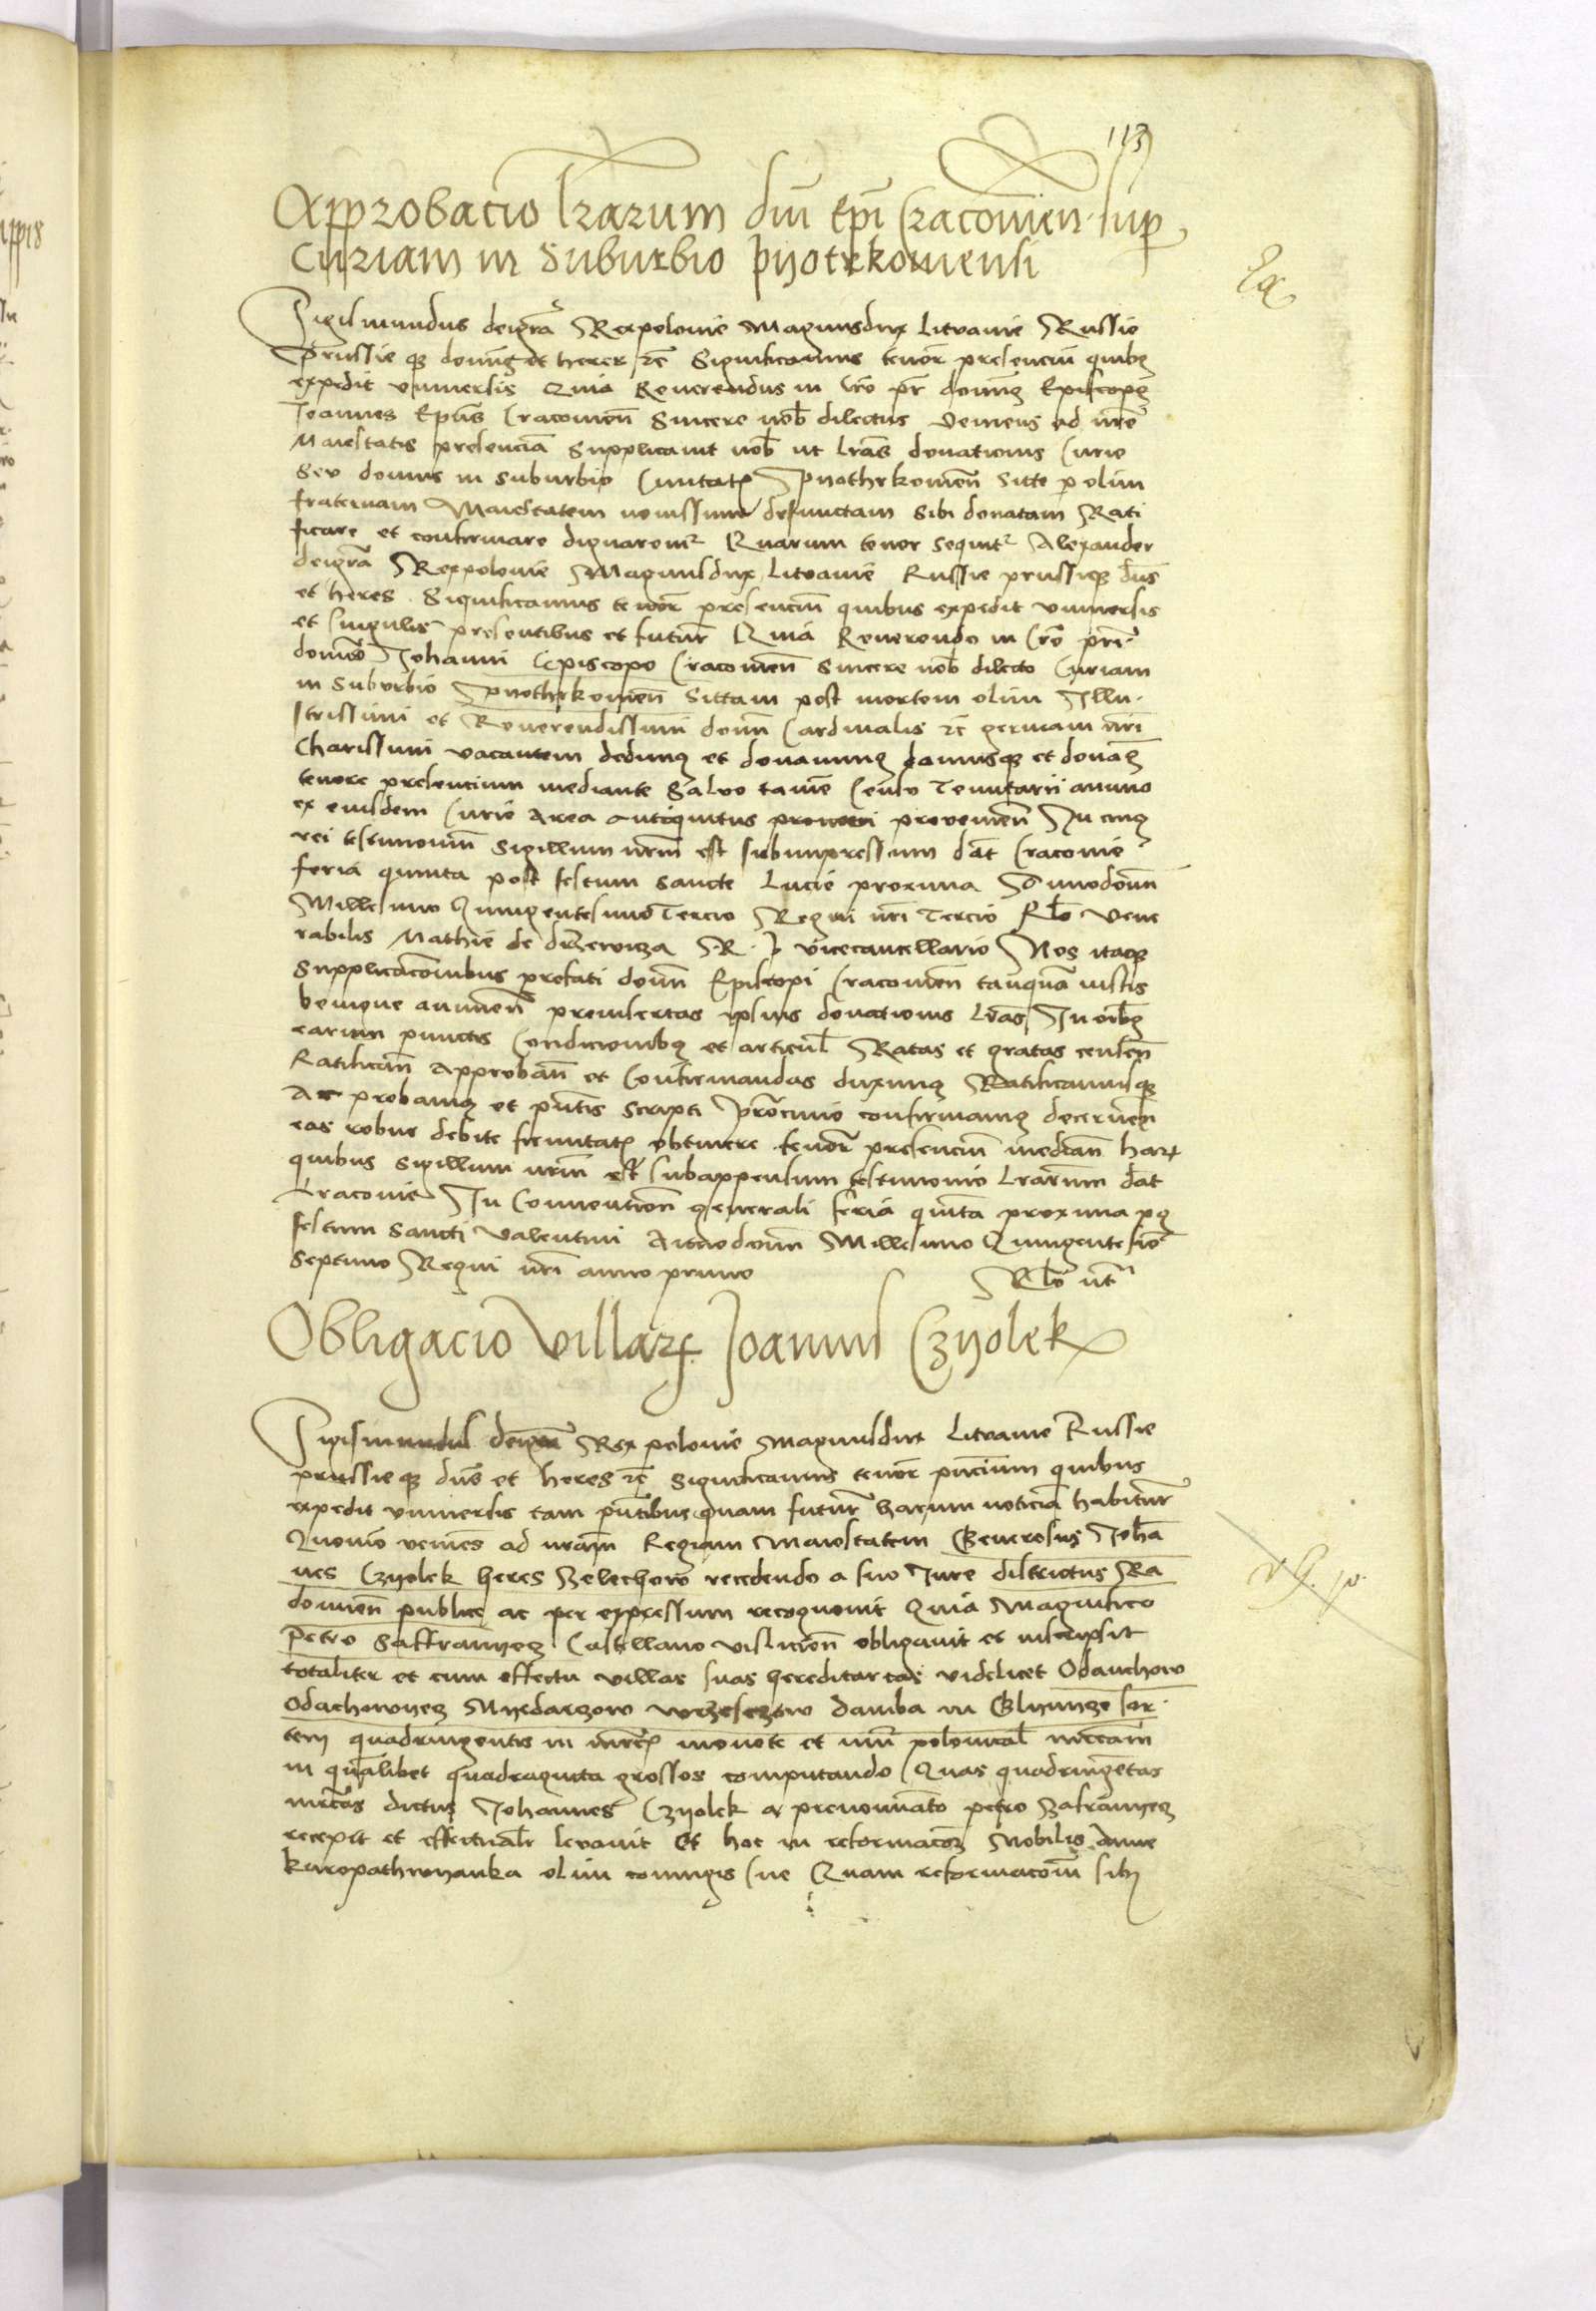 113
Approbacio lrarum dni Epi Cracovien. sup
Curiam in Suburbio pyotrkoviensi
Ex
Sigismundus deigra Rex polonie Magnusdux Litvanie Russie
Prussieq3 domin9 et heres etc Significamus tenor presenciu quib9
expedit universis Quia Reverendus in Cro pr domin9 Episcop9
Joannes Epus Cracovien Sincere nob dilectus veniens ad nre
Maiestatis presencia Supplicavit nob ut lras donationis Curie
Seu domus in suburbio Civitatis Pyothrkovien Sitte p olim
fraternam Maiestatem novissime defunctam sibi donatam Rati
ficare et confirmare dignarem2 Quarum tenor sequit2 Alexander
deigra Rexpolonie Magnusdux Litvanie Russie prussieq3 dns
et heres. Significamus tenor presenciu quibus expedit universis
et singulis presentibus et futur Quia Reverendo in Cro pri
domino Johanni Episcopo Cracovien Sincere nob dilecto Curiam
in Suburbio Pyothrkovien Sittam post mortem olim Illu.
strissimi et Reverendissimi domn Cardinalis etc germani nri
Charissimi vacantem dedim9 et donavim9 damusq3 et donam9
tenore presencium mediante Salvo tame Censu Tenutarii annuo
ex eiusdem Curie Area antiquitus provenien In cui9
rei testimoniu Sigillum nrm est subimpressum dat Cracovie
feria quinta post festum Sancte Lucie proxima Annodomn
Millesimo Quingentesimo Tercio Regni nri Tercio Rlo Vene
rabilis Mathie de drzewicza R. P vicecancellario Nos itaq3
Supplicacionibus prefati domn Episcopi Cracovien tanqua iustis
benigne annuen preinsertas ipsius donationis lras In oib9
earum punctis Condicionib9 et articul Ratas et gratas censen
Ratifican Approban et Confirmandas duxim9 Ratificamusq3
Ac probam9 et pntis scripti Procinio confirmam9 decernen
eas robur debite firmitatis obtinere tenor presenciu median har
quibus Sigillum nrm est subappensum testimonio lrarum dat
Cracovie In Convention generali feria quita proxima p9
festum Sancti Valentini Annodomn Millesimo Quingentesio
Septimo Regni nri anno primo Rlo ut
Obligacio Villar Joannis Czyolek
Sigismundus deigra Rex polonie Magnusdux Litvanie Russie
prussieq3 dns et heres etc Significamus tenor pncium quibus
expedit universis tam pntibus quam futur harum noticia habitur
Quomo veniens ad nram Regiam Maiestatem Generosus Joha
nes Czyolek heres Zelechow recedendo a suo Jure districtus Ra
domien publice ac per expressum recognovit Quia Magnifico
Petro Saffranyecz Castellano vislicien obligavit et inscripsit
totaliter et cum effectu villas suas hereditarias videlicet Odanchow
Odachowyecz Myedarzow wrzeschow damba in Glynnyze sor.
tem quadringentis in mrcis monete et num polonical mrcam
in qualibet quadraginta grossos computando Quas quadringentas
mrcas dictus Johannes Czyolek a prenominato petro Zafranyecz
recepit et effectualr levavit Et hoc in reformacoe Nobilis Anne
Kuropathwyanka olim coniugis sue Quam reformacom sibi